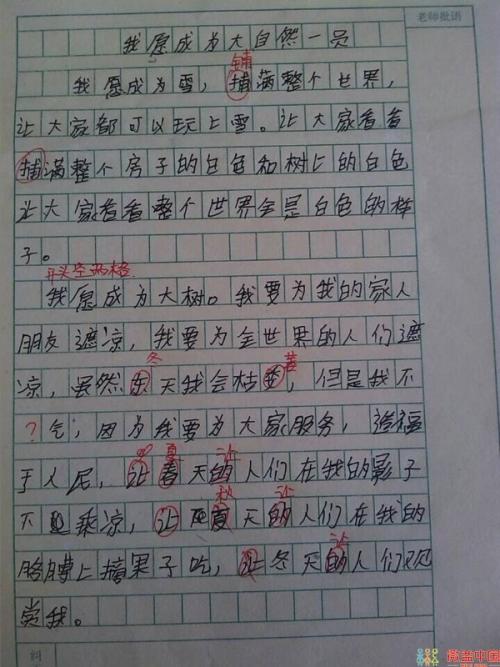 老师批语
我愿成为大自然一员
铺
我愿成为雪，捕满整个世界，
让大家都可以玩上雪。让大家看看
捕满整个房子的白色和树上的白色
让大家看看整个世界全是白色的样
子。
开头空两格
我愿成为大树。我要为我的家人
朋友遮凉，我要为全世界的人们遮
冬 萎
凉，虽然东天我会枯，但是我不
？气，因为我要为大家服务，造福
夏 让
于人民，让春天的人们在我的影子
秋 让
不乘凉，让夏天的人们在我的
让
胳膊上摘果子吃，让冬天的人们观
赏我。
微盖中国